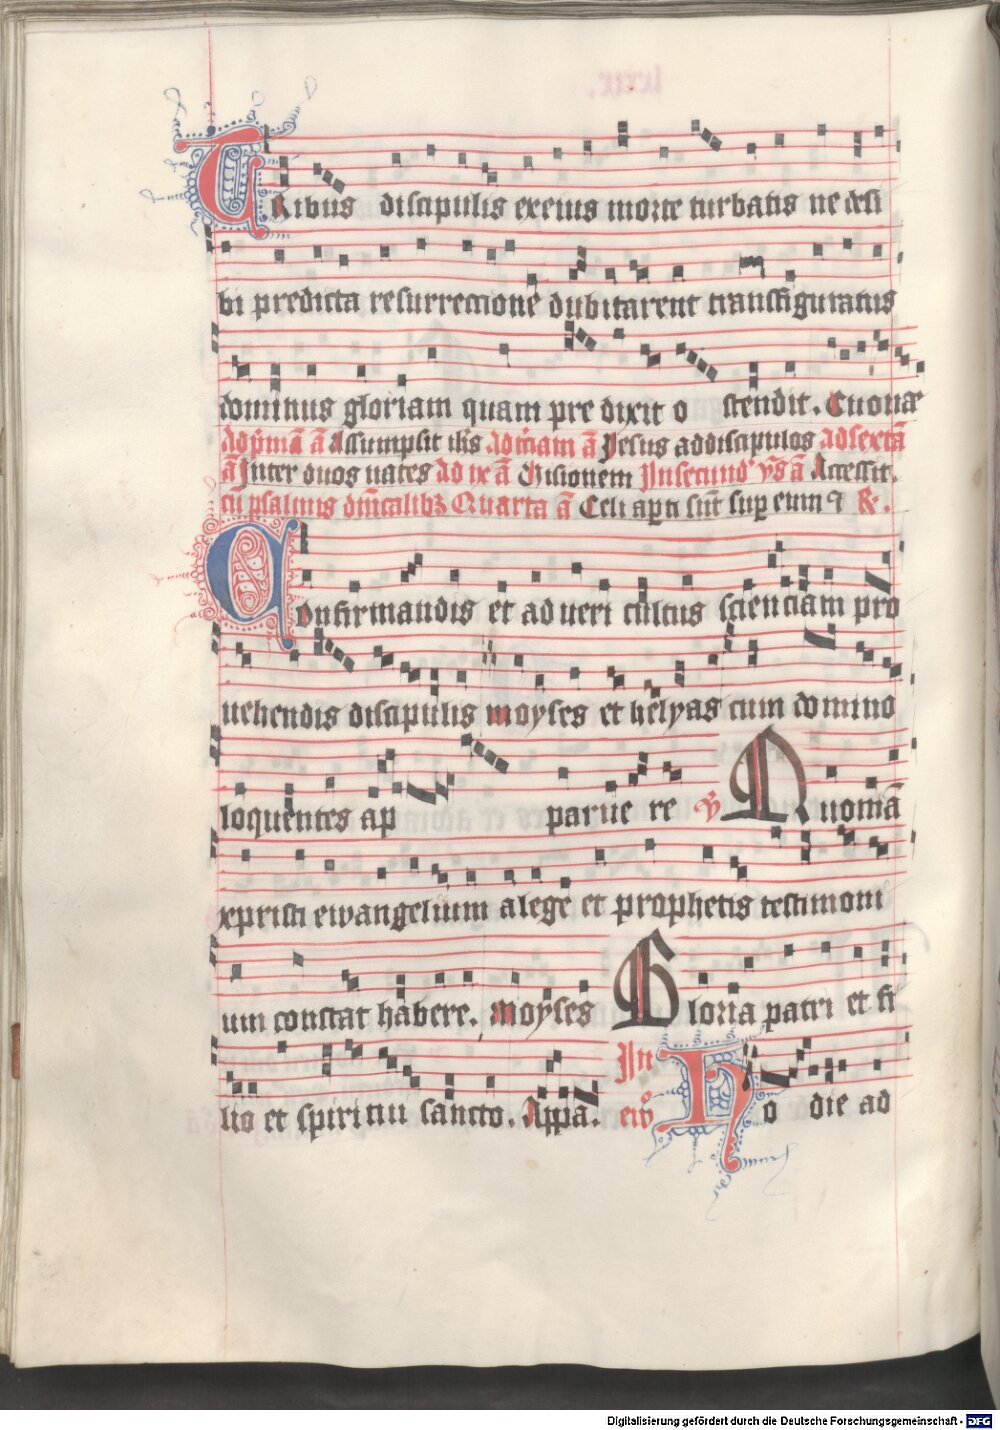 TRibus discipulis ex eius morte turbatis ne de si
bi predicta resurrectione dubitarent transfiguratus
dominus gloriam quam pre dixit o stendit. Euouae
Ad pͥmā ā Assumpsit ihs Ad tͥciam ā Jesus ad discipulos Ad sextā
ā Inter duos uates Ad ix ā Visionem In secund' vs̄ ā Accessit.
cū psalmis dn̄icalibꝫ Quarta ā Celi aperti sūt sup eum ⁊ R.
COnfirmandis et ad ueri cultus scienciam pro
uehendis discipulis moyses et helyas cum domino
loquentes ap parue re V̄ Quoniā
xpristi ewangelium a lege et prophetis testimoni
um constat habere. Moyses Gloria patri et fi
lio et spiritui sancto. Appa. In
ewō Ho die ad
Digitalisierung gefördert durch die Deutsche Forschungsgemeinschaft - DFG